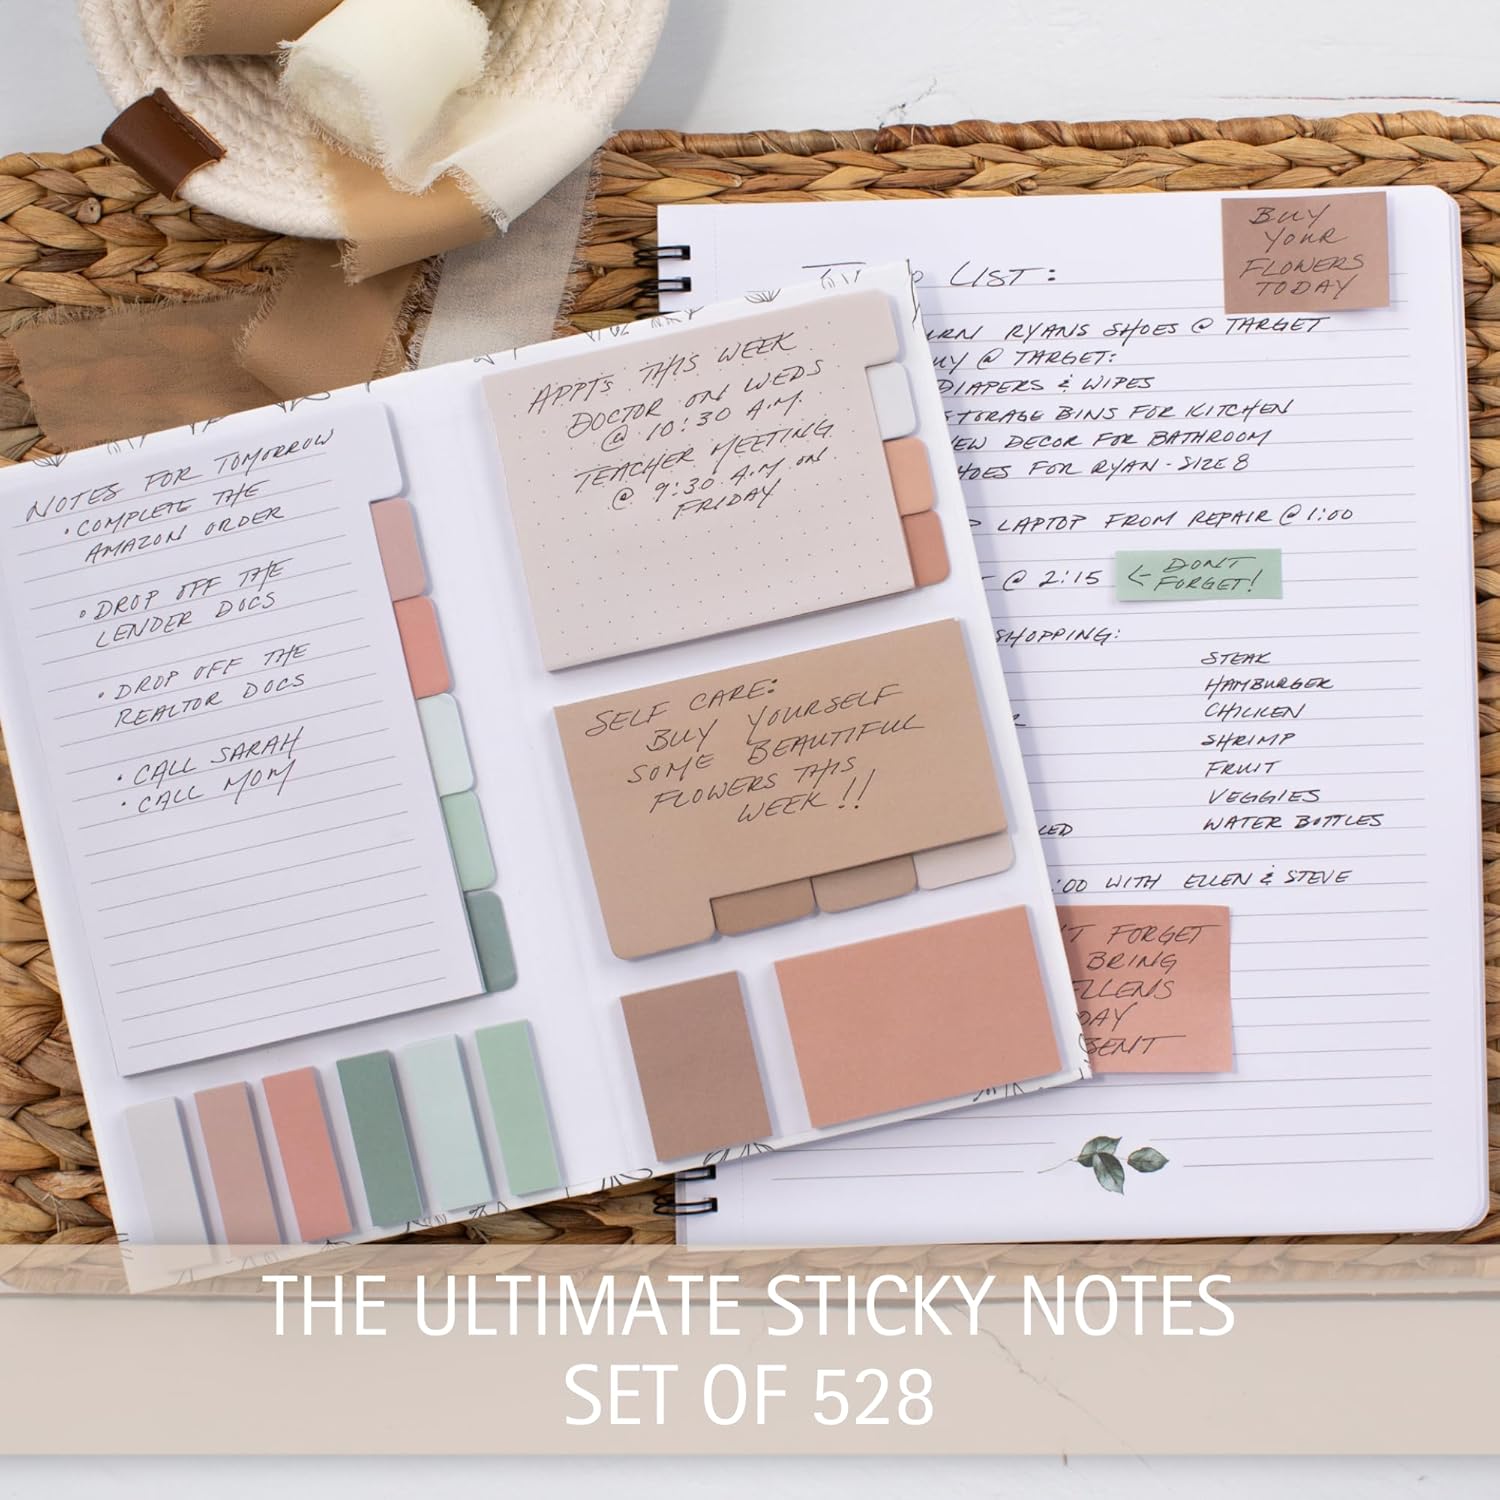 NOTES FOR TOMORROW
• COMPLETE THE
AMAZON ORDER
• DROP OFF THE
LENDER DOCS
• DROP OFF THE
REALTOR DOCS
• CALL SARAH
• CALL MOM
APPTS THIS WEEK
DOCTOR ON WEDS
@ 10:30 A.M.
TEACHER MEETING
@ 9:30 A.M ON
FRIDAY
SELF CARE:
BUY YOURSELF
SOME BEAUTIFUL
FLOWERS THIS
WEEK!!
BUY
YOUR
FLOWERS
TODAY
LIST:
RYANS SHOES @ TARGET
@ TARGET:
DIAPERS & WIPES
STORAGE BINS FOR KITCHEN
DECOR FOR BATHROOM
FOR RYAN - SIZE 8
LAPTOP FROM REPAIR @ 1:00
@ 2:15
← DONT
FORGET!
SHOPPING:
STEAK
HAMBURGER
CHICKEN
SHRIMP
FRUIT
VEGGIES
WATER BOTTLES
:00 WITH ELLEN & STEVE
FORGET
BRING
ELLENS
THE ULTIMATE STICKY NOTES
SET OF 528